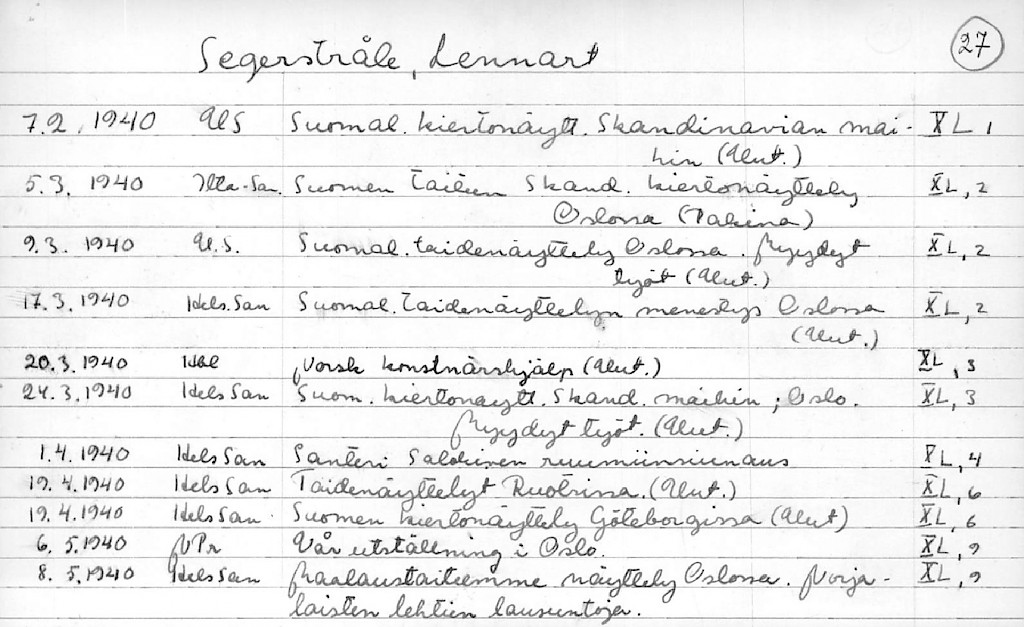 27
Segerstråle, Lennart
7.2. 1940 US Suomal. kiertonäytt. Skandinavian mai- XL 1
hin (Uut.)
5.3. 1940 Ilta-San. Suomen taiteen Skand. kiertonäyttely XL, 2
Oslossa (Pakina)
9.3. 1940 U.S. Suomal. taidenäyttely Oslossa. Myydyt XL, 2
työt (Uut.)
17.3.1940 Hels.San Suomal. taidenäyttelyn menestys Oslossa XL, 2
(Uut.)
20.3.1940 Hbl Norsk konstnärshjälp (Uut.) XL, 3
24.3.1940 Hels San Suom. kiertonäytt. Skand. maihin; Oslo. XL, 3
Myydyt työt. (Uut.)
1.4.1940 Hels San Santeri Salokiven ruumiinsiunaus XL, 4
19.4.1940 Hels San Taidenäyttelyt Ruotsissa. (Uut.) XL, 6
19.4.1940 Hels San. Suomen kiertonäyttely Göteborgissa (Uut) XL, 6
6.5.1940 NPr Vår utställning i Oslo. XL, 9
8.5.1940 Hels San Maalaustaiteemme näyttely Oslossa. Norja- XL, 9
laisten lehtien lausuntoja.